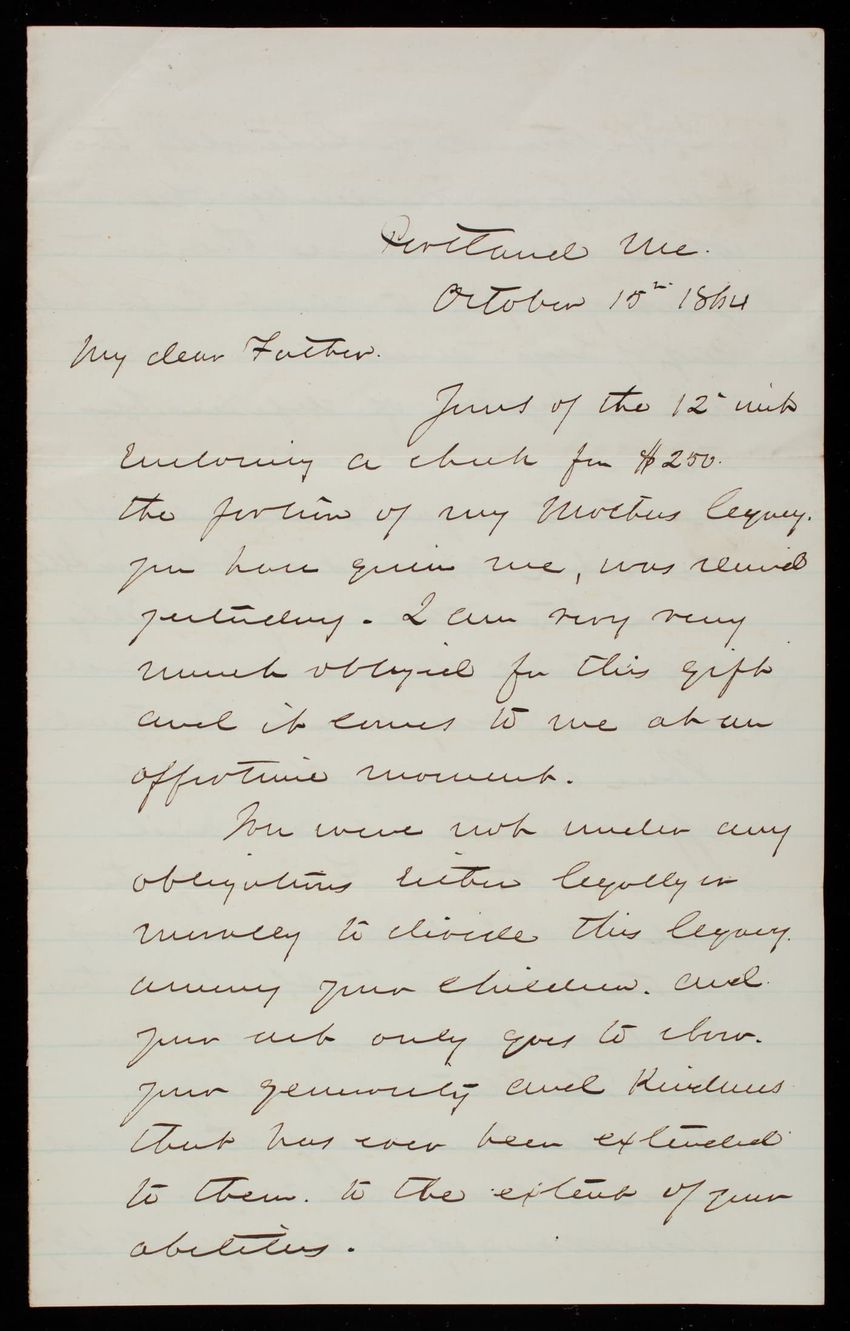 Portland Me.
October 15th 1864
My dear Father.
Yours of the 12" inst
Enclosing a check for $250.
the portion of my Mothers legacy.
you have given me, was received
yesterday. I am very very
much obliged for this gift
and it comes to me at an
opportune moment.
You were not under any
obligations Either legally or
morally to divide this legacy.
among your children. and
your act only goes to show.
your generosity and Kindness
that has ever been extended
to them. to the extent of your
abilities.